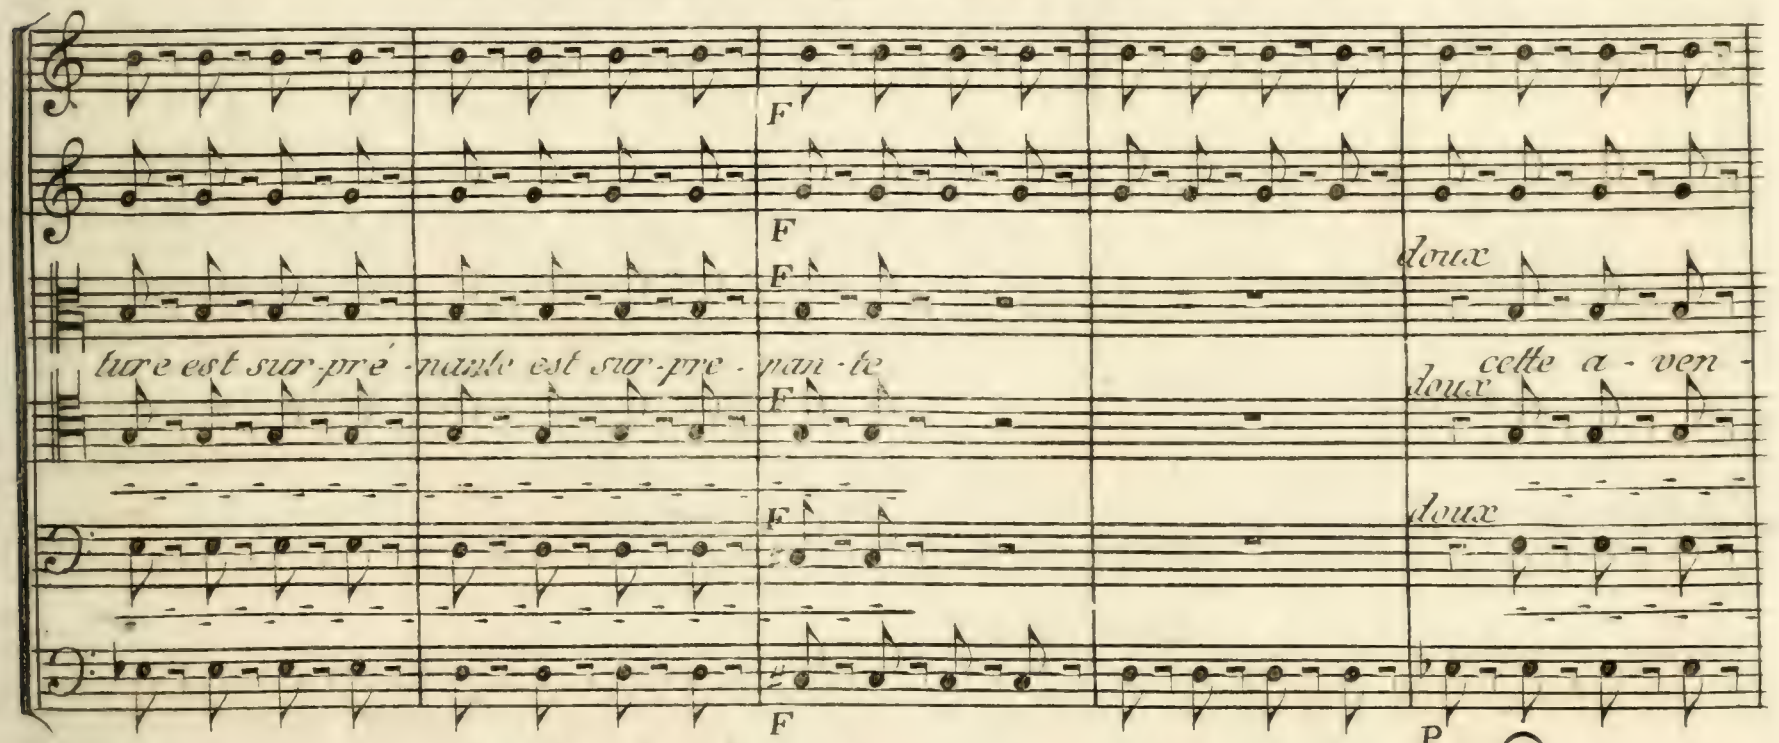 F
F
F
doux
ture est sur-pré-nante est sur-pre-nan-te cette a-ven-
F
doux
F
doux
F
P